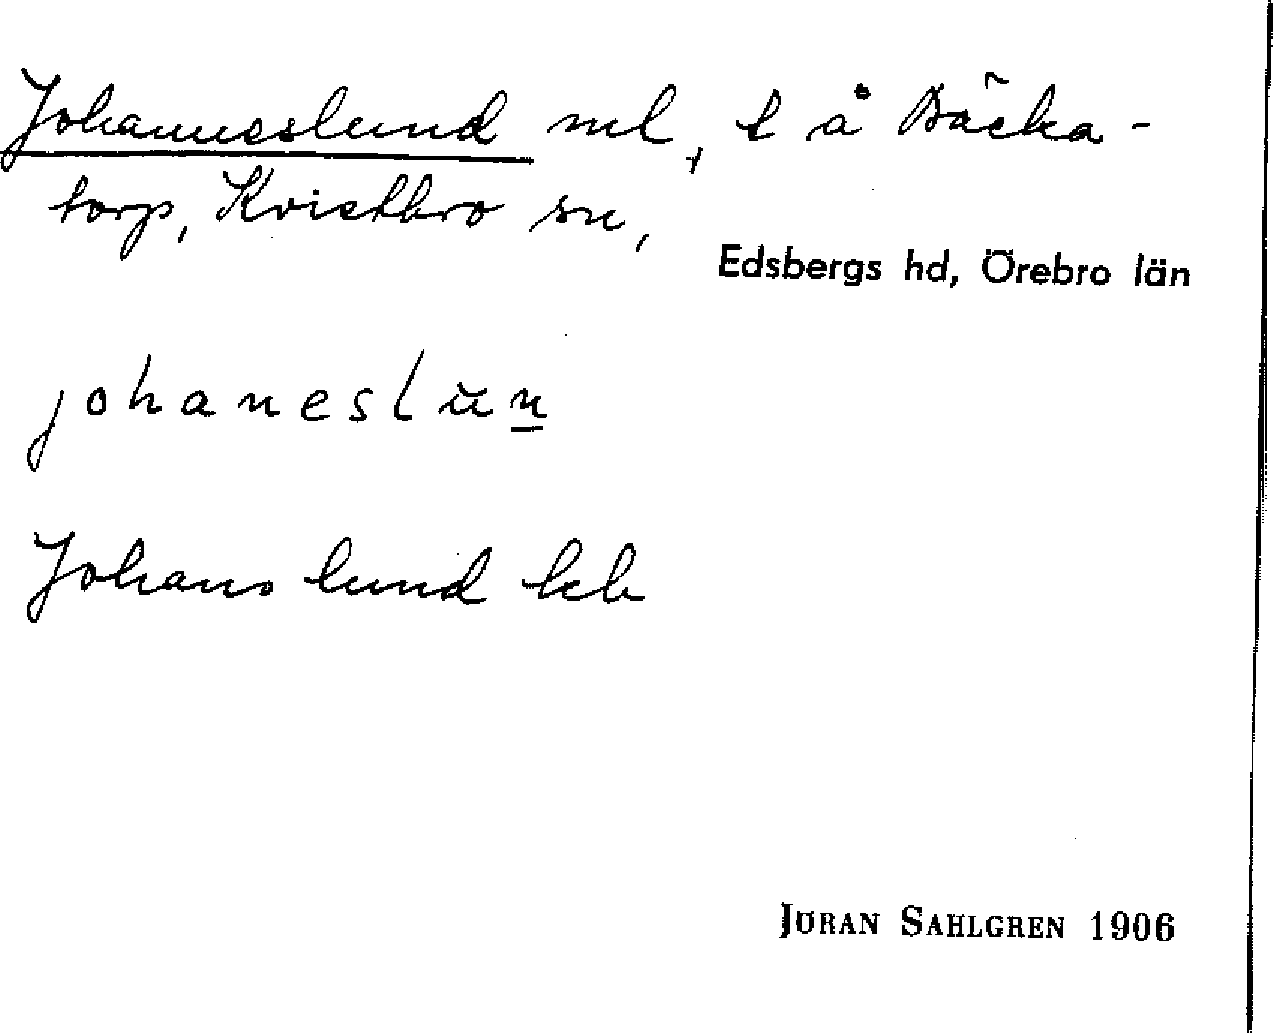 Johanneslund ml, t å Bäcka-
torp, Kvistbro sn,
Edsbergs hd, Örebro län
johaneslun
Johanslund kb
JÖRAN SAHLGREN 1906